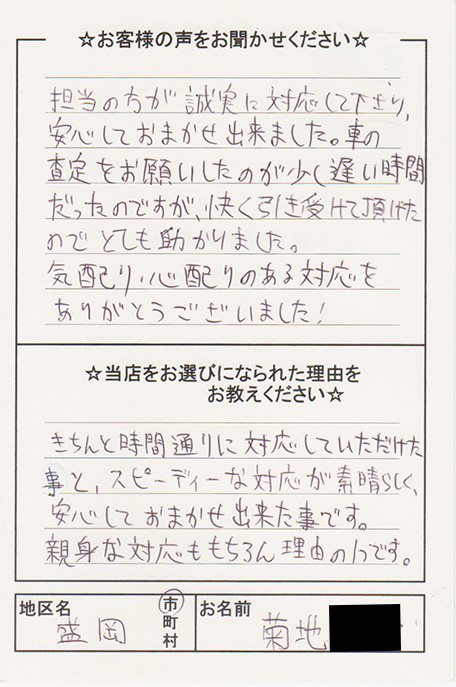 ☆お客様の声をお聞かせください☆
担当の方が誠実に対応して下さり、
安心しておまかせ出来ました。車の
査定をお願いしたのが少し遅い時間
だったのですが、快く引き受けて頂けた
のでとても助かりました。
気配り、心配りのある対応を
ありがとうございました!
☆当店をお選びになられた理由を
お教えください☆
きちんと時間通りに対応していただけた
事と、スピーディーな対応が素晴らしく、
安心しておまかせ出来た事です。
親身な対応ももちろん理由の1つです。
地区名 盛岡 市町村 お名前 菊地